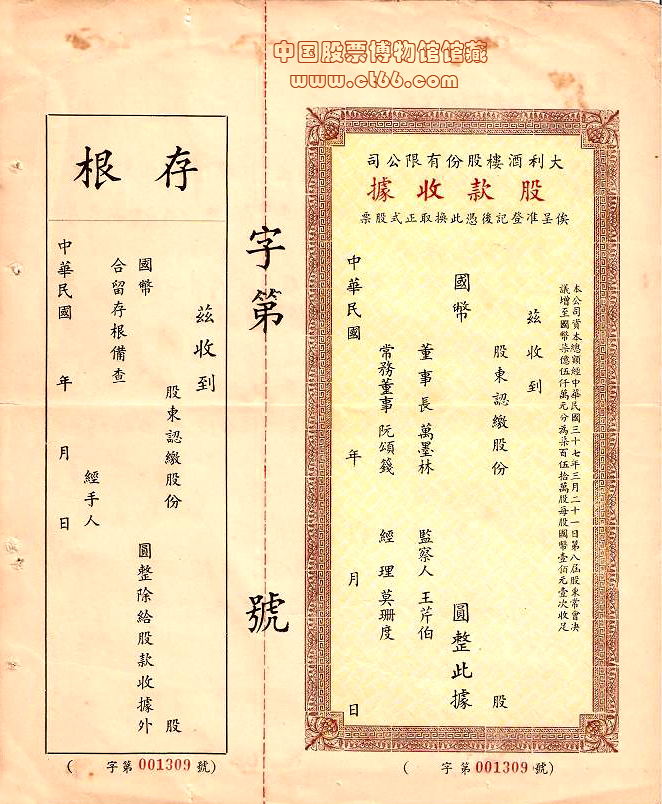 中国股票博物馆馆藏
www.ct66.com
大利酒樓股份有限公司
股款收據
俟呈准登記後憑此換取正式股票
本公司資本總額經中華民國三十七年三月二十一日第八屆股東常會决
議增至國幣柒億伍仟萬元分為柒百伍拾萬股每股國幣壹佰元壹次收足
茲收到
股東認繳股份 股
國幣 圓整此據
董事長 萬墨林 監察人 王芹伯
常務董事 阮頌錢 經理 莫珊度
中華民國 年 月 日
( 字第 001309 號)
字第 號
存根
茲收到
股東認繳股份 股
國幣 圓整除給股款收據外
合留存根備查
經手人
中華民國 年 月 日
( 字第 001309 號)